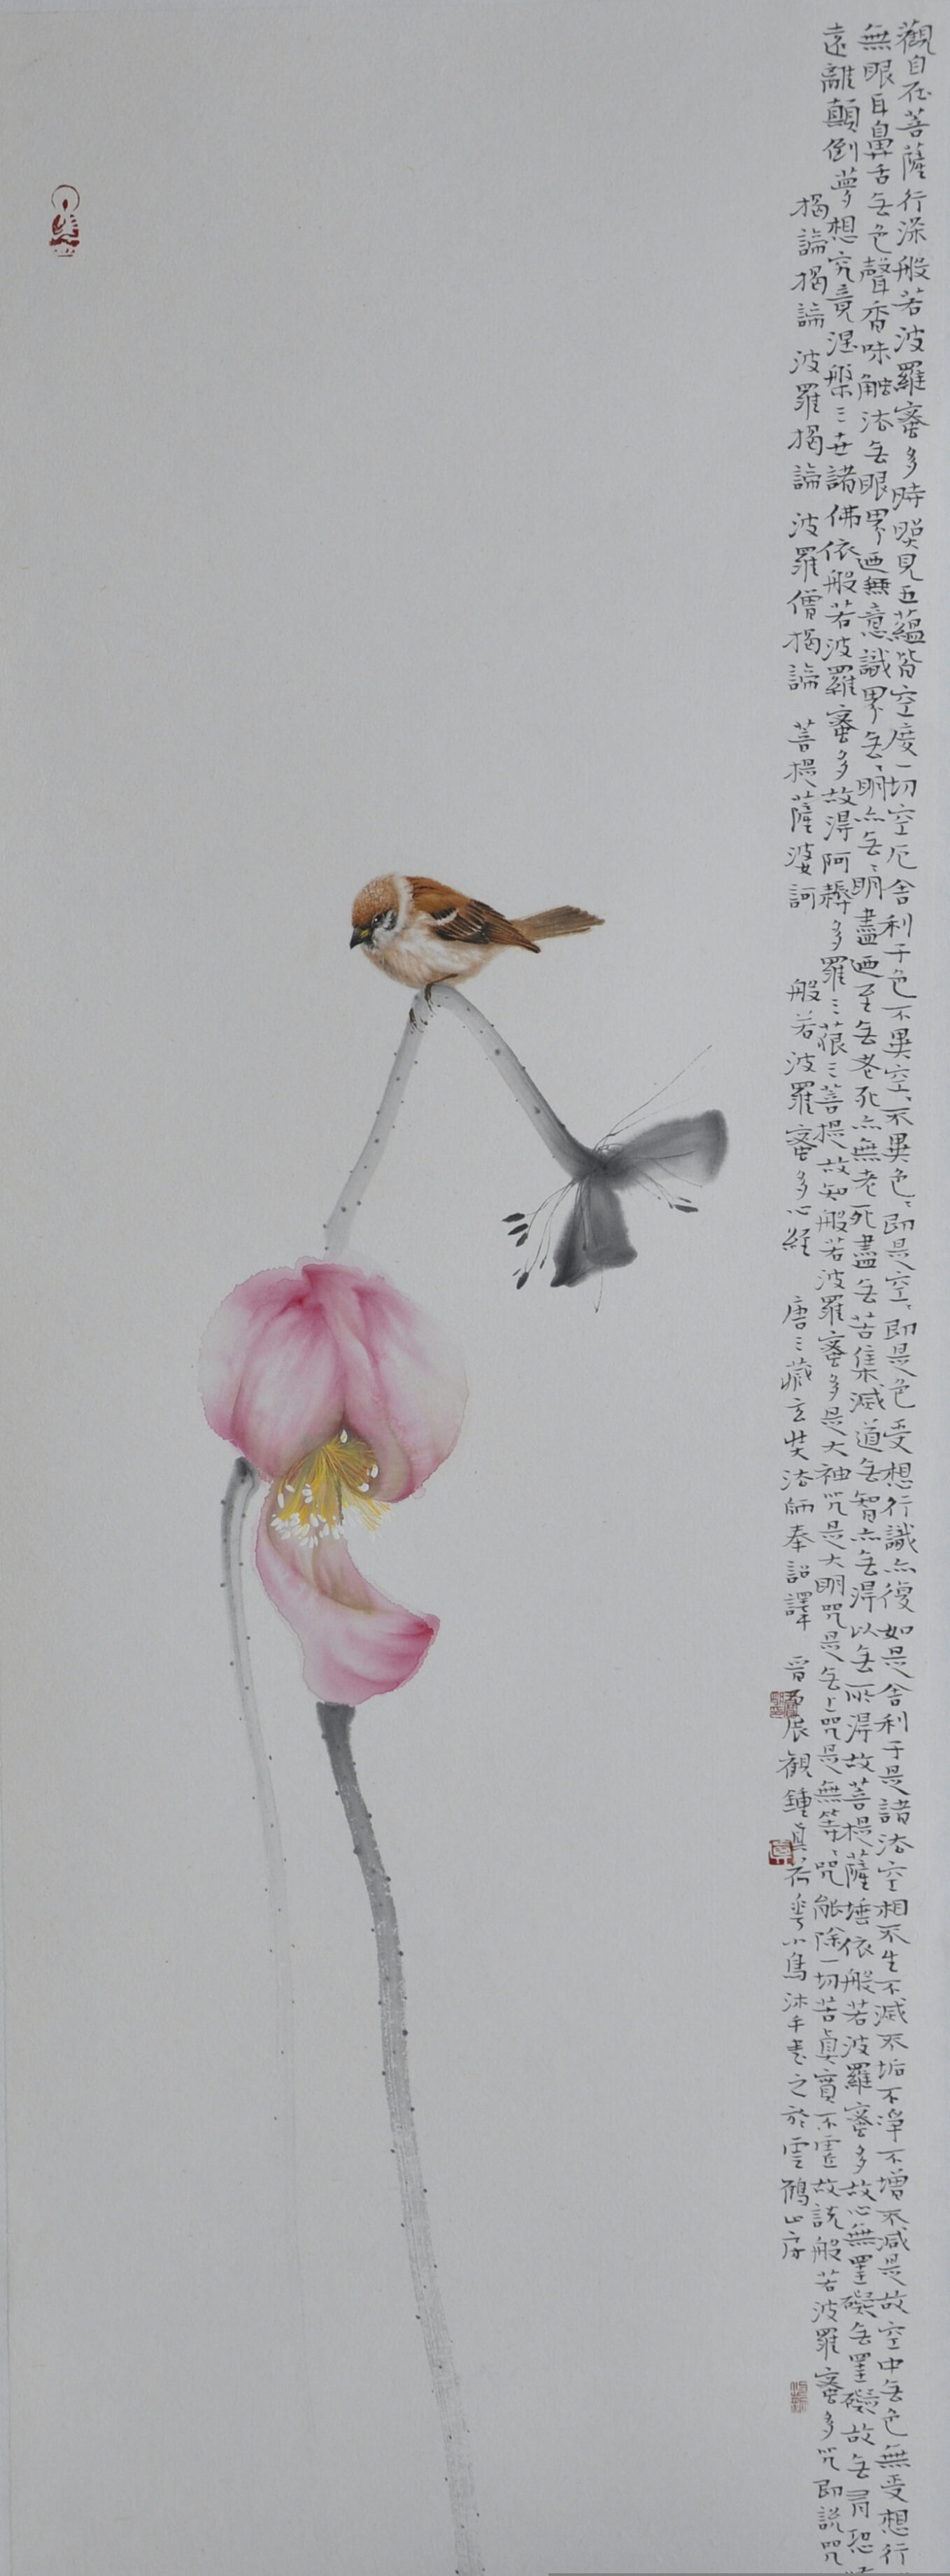 觀自在菩薩行深般若波羅蜜多時照見五蘊皆空度一切空厄舍利子色不異空、不異色、即是空、即是色受想行識亦復如是舍利子是諸法空相不生不滅不垢不淨不增不減是故空中无色無受想行
無眼耳鼻舌无色聲香味觸法无眼界迺無意識界无、明亦无、明盡迺至无老死亦無老死盡无苦集滅道无智亦无得以无所得故菩提薩埵依般若波羅蜜多故心無罣礙无罣礙故无有恐
遠離顛倒夢想究竟涅槃三世諸佛依般若波羅蜜多故得阿耨多羅三藐三菩提故知般若波羅蜜多是大神咒是大明咒是无上咒是無等、咒能除一切苦真實不虛故說般若波羅蜜多咒即說咒
揭諦揭諦 波羅揭諦 波羅僧揭諦 菩提薩婆訶 般若波羅蜜多心經 唐三藏玄奘法師奉詔譯 展觀鍾真荷華小鳥沐手書之於雲鶴山房